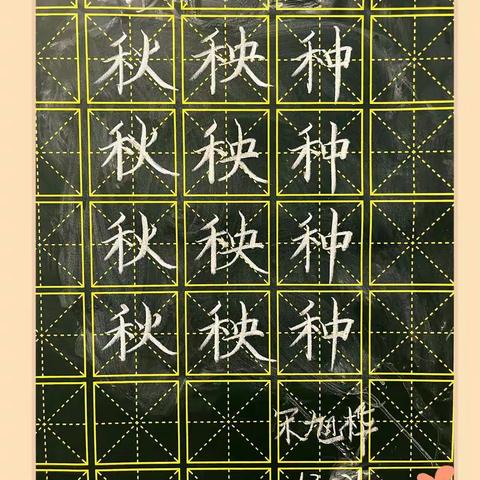 秋秧种
秋秧种
秋秧种
秋秧种